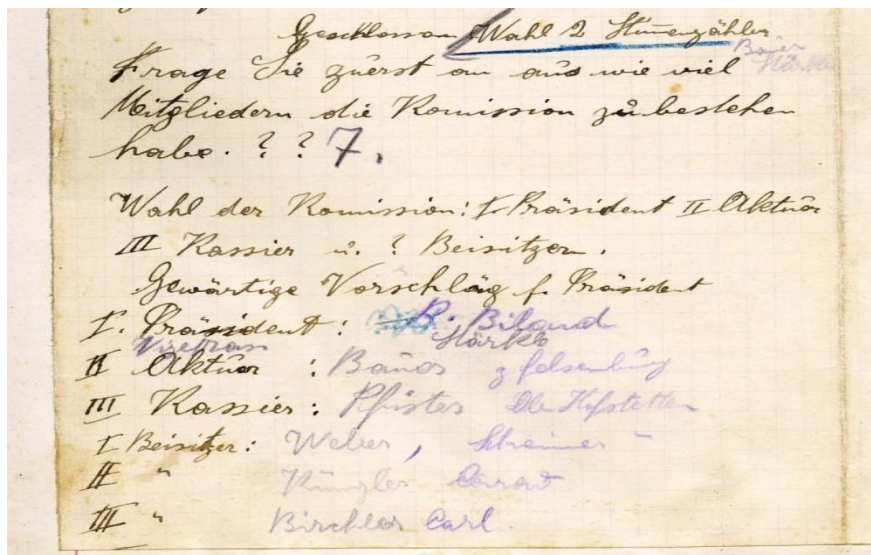 Geschlossen Wahl 2 Stimenzähler
Bauer
Stärkle
Frage Sie zuerst an aus wie viel
Mitgliedern die Komission zu bestehen
habe. ? ? 7.
Wahl der Komission: I. Präsident II Aktuar
III Kassier u. ? Beisitzern.
Gewärtige Vorschläg f. Präsident
I. Präsident: B. Biland
Vizepräs Stärkle
II Aktuar : Bauer z Felsenburg
III Kassier: Pfister Hofstetten
I Beisitzer: Weber, Schreiner
II "
III " Birchler Carl